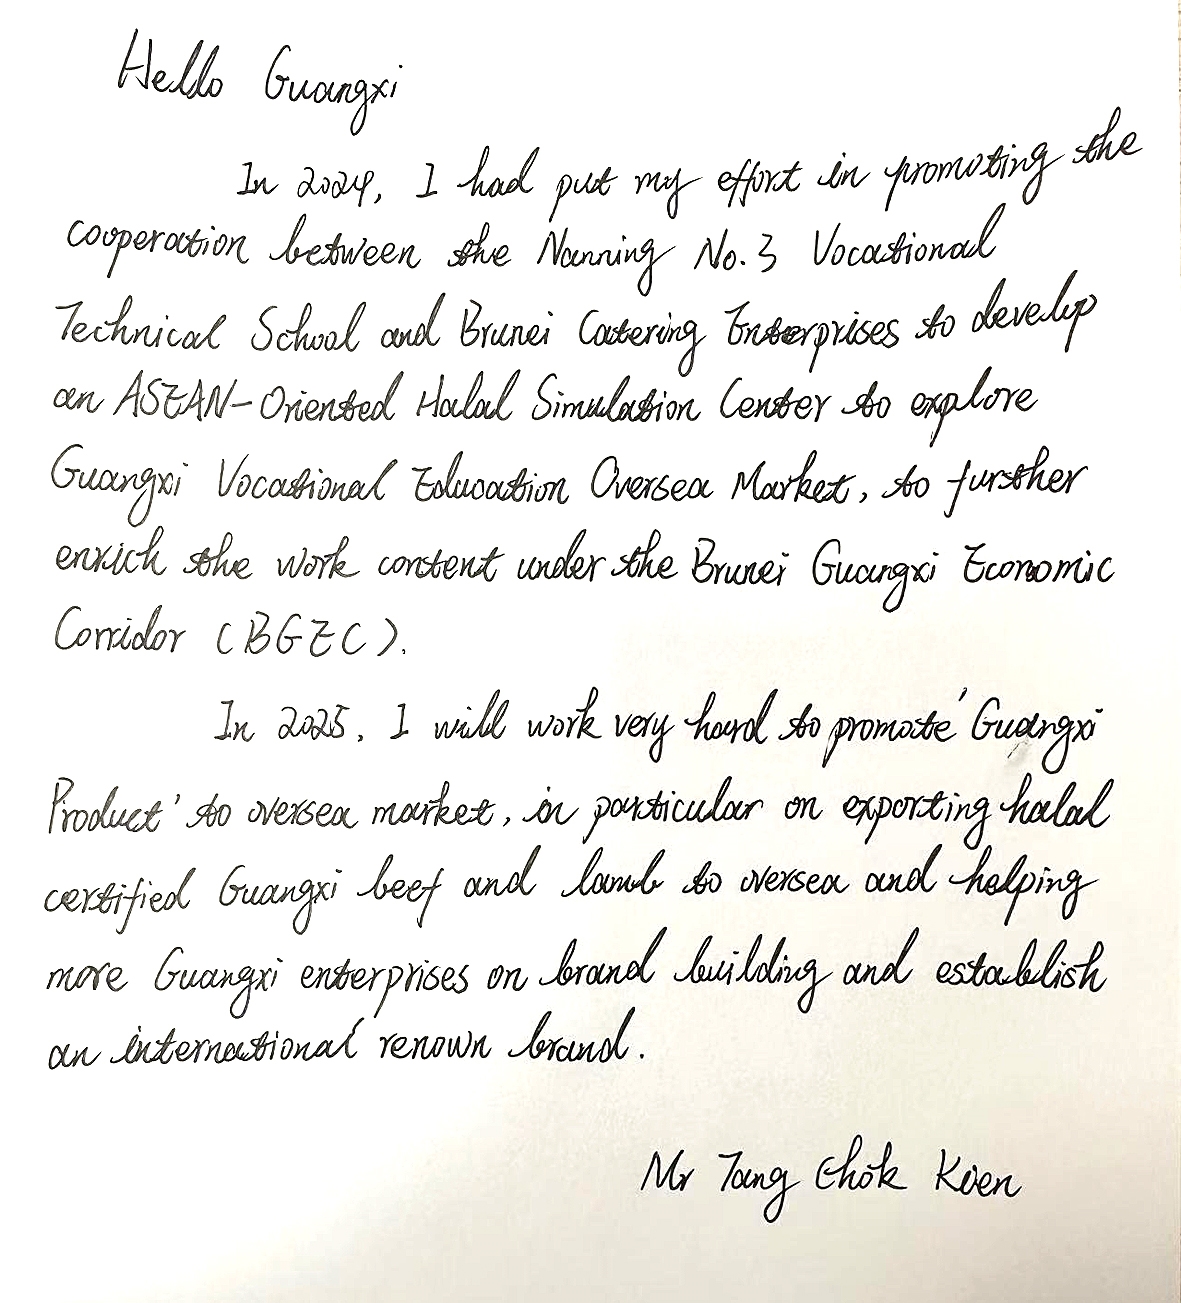 Hello Guangxi
In 2024, I had put my effort in promoting the
cooperation between the Nanning No.3 Vocational
Technical School and Brunei Catering Enterprises to develop
an ASEAN-Oriented Halal Simulation Center to explore
Guangxi Vocational Education Oversea Market, to further
enrich the work content under the Brunei Guangxi Economic
Corridor (BGEC).
In 2025, I will work very hard to promote 'Guangxi
Product' to oversea market, in particular on exporting halal
certified Guangxi beef and lamb to oversea and helping
more Guangxi enterprises on brand building and establish
an international renown brand.
Mr Tang Chok Kien